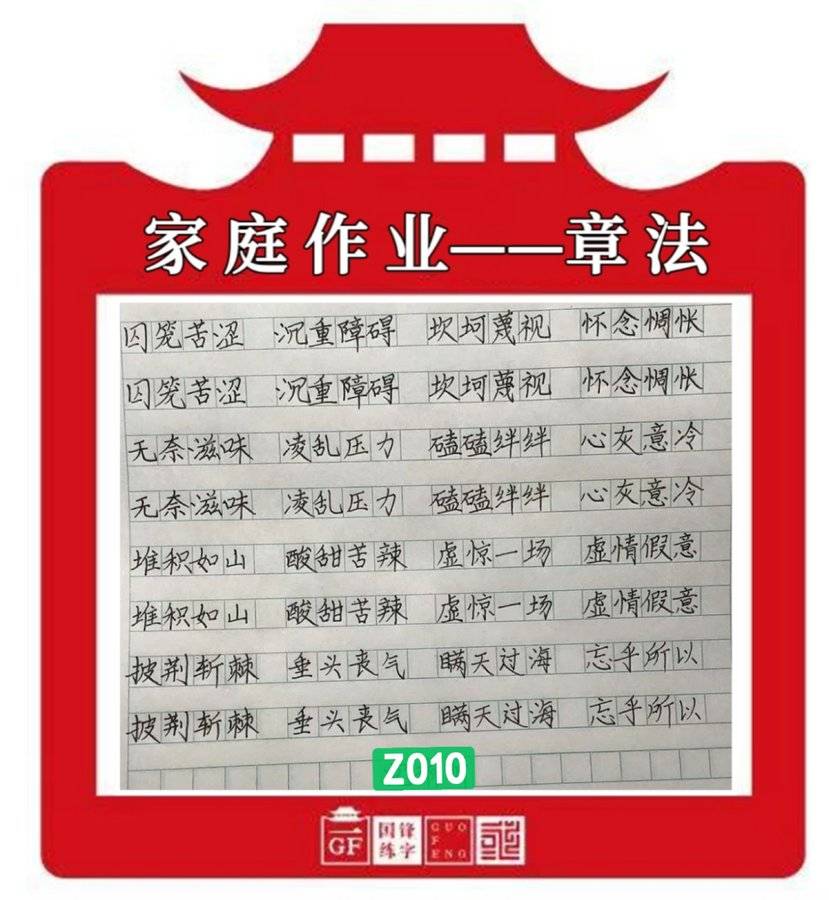 家庭作业——章法
囚笼苦涩 沉重障碍 坎坷蔑视 怀念惆怅
囚笼苦涩 沉重障碍 坎坷蔑视 怀念惆怅
无奈滋味 凌乱压力 磕磕绊绊 心灰意冷
无奈滋味 凌乱压力 磕磕绊绊 心灰意冷
堆积如山 酸甜苦辣 虚惊一场 虚情假意
堆积如山 酸甜苦辣 虚惊一场 虚情假意
披荆斩棘 垂头丧气 瞒天过海 忘乎所以
披荆斩棘 垂头丧气 瞒天过海 忘乎所以
Z010
GF 国锋练字 GUO FENG